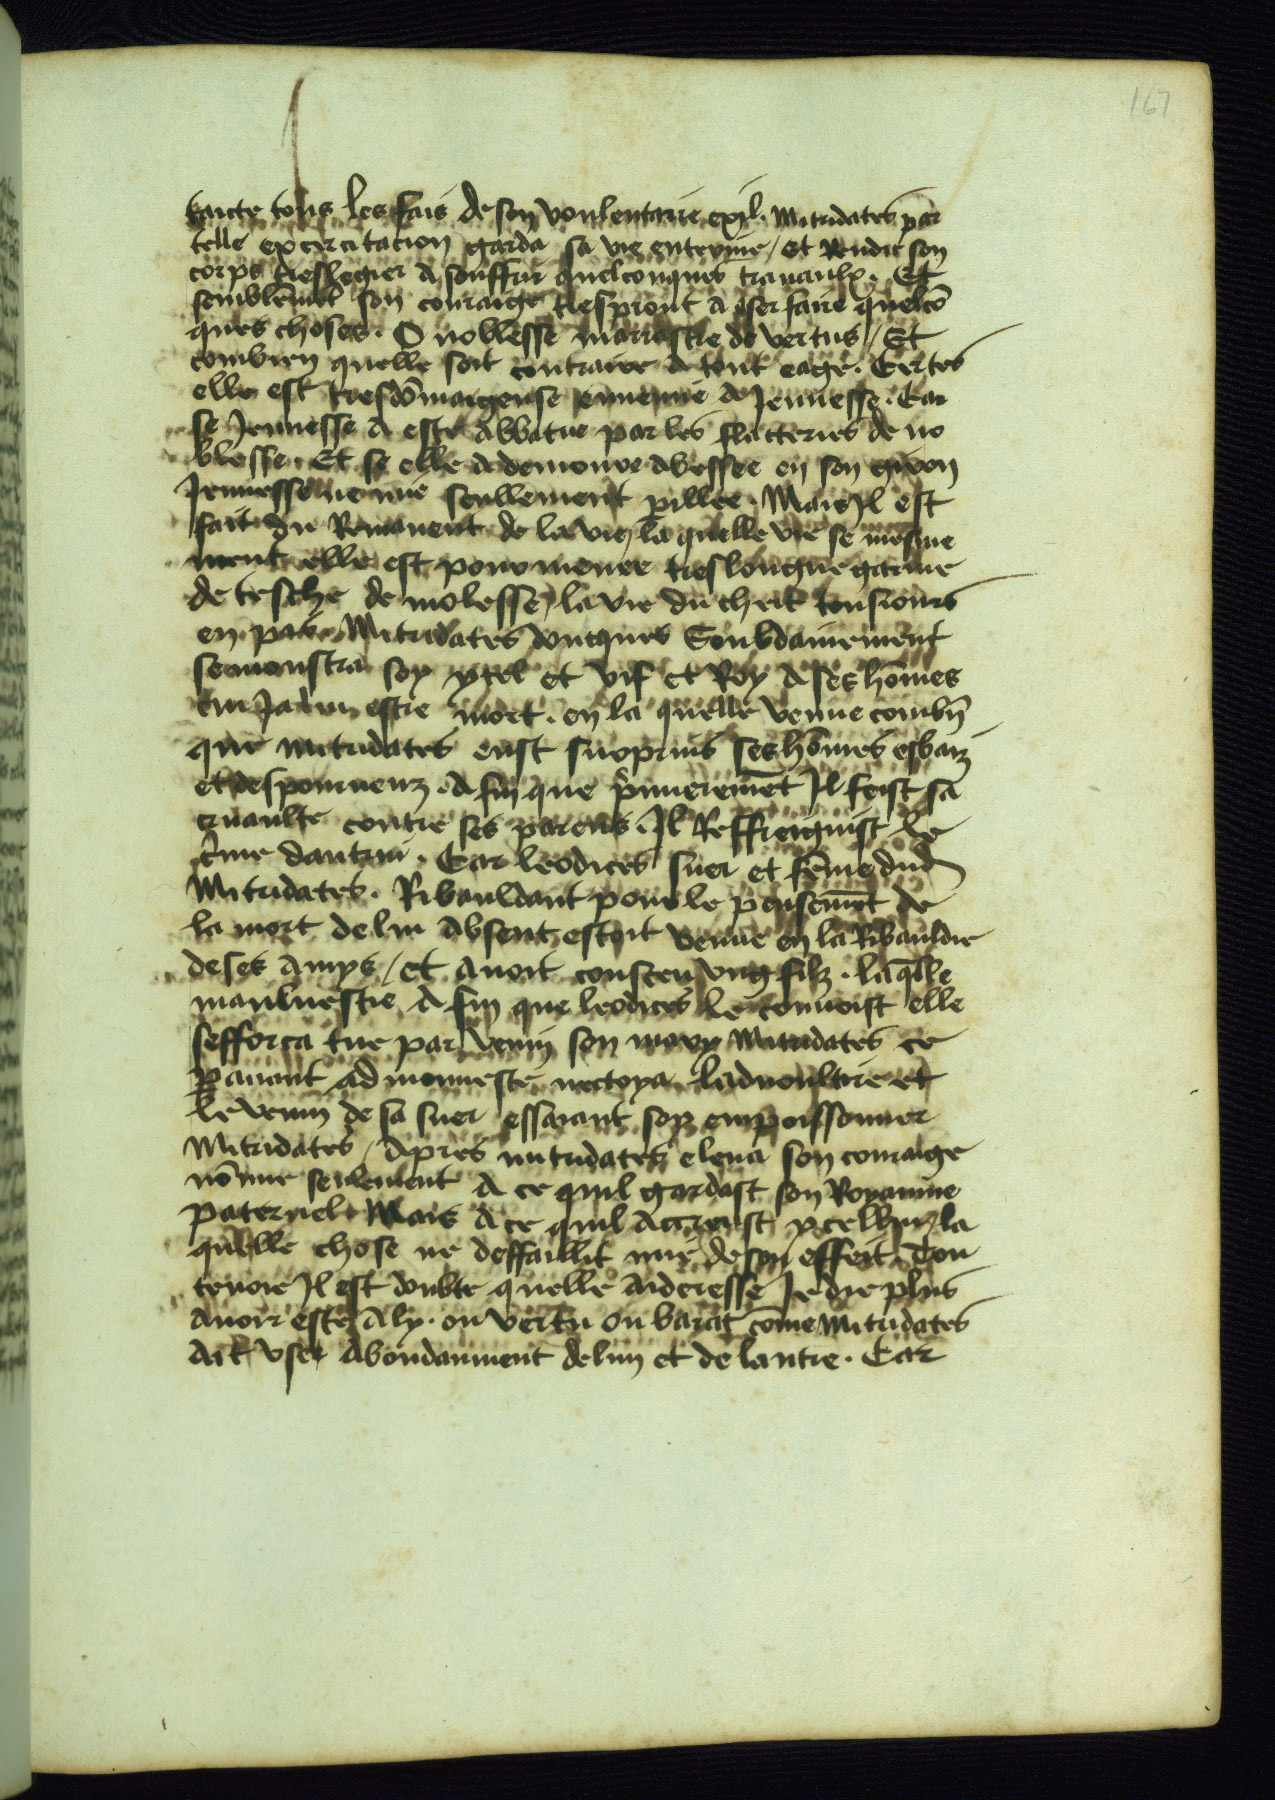 167
taicte tous les fais de son voulentaire exil. Mitridates par
telle excercitacion garda sa vie enterine / et Rendit son
corps treslegier a souffrir quelconques travaulx. Et
semblemēt son couraige trespront a oser faire quelcō
ques choses. O noblesse marrastre de vertus / Et
combien quelle soit contraire a tout eage. Certes
elle est tresdōmaigeuse ennemie de Jeunesse. Car
se Jeunesse a este abbatue par les flatteries de no
blesse. Et se elle a demoure abessee en son giron
Jeunesse ne mie seullement pillee. Mais Il est
fait du Remanent de la vie / la quelle vie se mesme
ment elle est pourmenee treslongue garnie
de tesche de molesse / la vie du chiet tousiours
en pais. Mitridates doncques Soubdainement
se monstra soy ytel et vif et Roy a ses hōmes
cuidans lui estre mort. en la quelle venue combn̄
que mitridates eust surprins ses hōmes esbaiz
et despourveuz. a fin que p̄mieremēt Il feist sa
cruaulte contre ses parens. Il Reffreignist le
c̄me dautrui. Car leodices suer et fēme dud
Mitridates. Ribauldant pour le pensemēt de
la mort de lui absent estoit venue en la Ribauldie
de ses amys / et avoit conceu ung filz. laq̄lle
mauluestie a fin que leodices le couvrist elle
sefforca tue par venin son mary Mitridates ce
pavant admonneste nectoya ladvoultrie et
le venin de sa suer essaiant soy empoissonner
Mitridates / Apres mitridates eleva son couraige
nō mie seulement a ce quil gardast son Royaume
paternel. Mais a ce quil accreust ycelluy / la
quelle chose ne deffaillit mie de son effeit. Tou
tevoie Il est doubte quelle aideresse Je die plus
avoir este a ly. ou vertu ou barat cōme Mitridates
ait use abondanment de lun et de lautre. Car